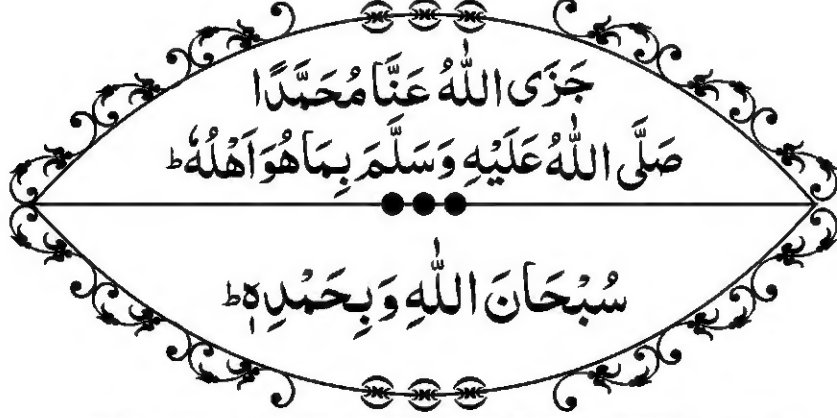 جَزَی اللّٰهُ عَنَّا مُحَمَّدًا
صَلَّی اللّٰهُ عَلَیْهِ وَسَلَّمَ بِمَا هُوَ اَهْلُهٗ ط
سُبْحَانَ اللّٰهِ وَبِحَمْدِهٖ ط